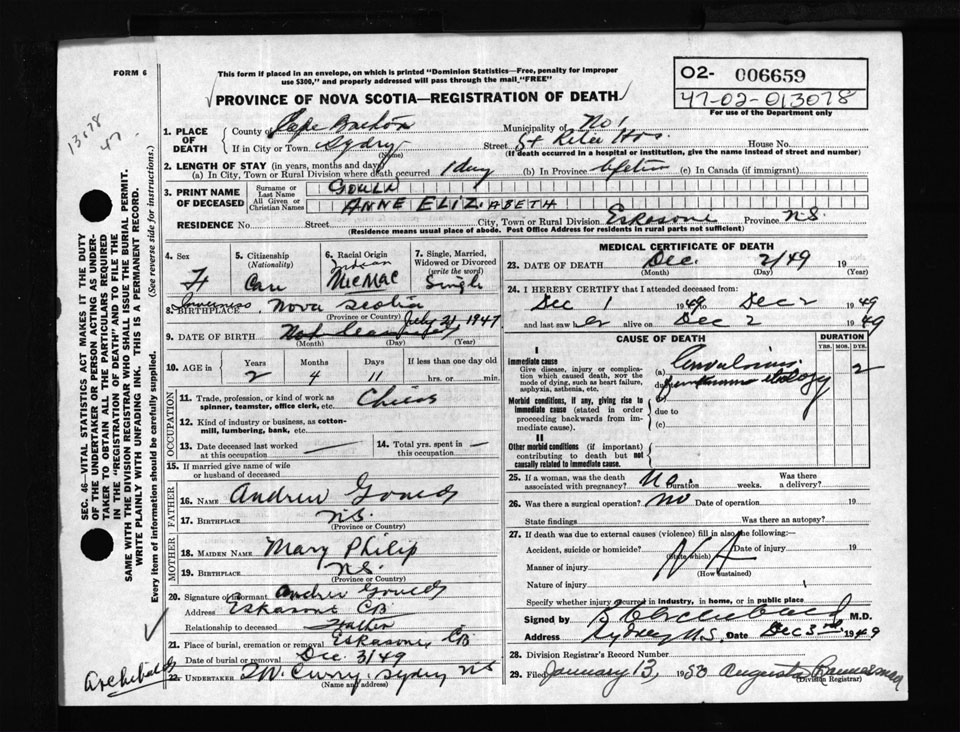 FORM 6
This form if placed in an envelope, on which is printed "Dominion Statistics—Free, penalty for improper
use $300," and properly addressed will pass through the mail, "FREE"
PROVINCE OF NOVA SCOTIA—REGISTRATION OF DEATH
O2- 006659
47-02-013078
For use of the Department only
13078
47
SEC. 46—VITAL STATISTICS ACT MAKES IT THE DUTY
OF THE UNDERTAKER OR PERSON ACTING AS UNDER-
TAKER TO OBTAIN ALL THE PARTICULARS REQUIRED
IN THE "REGISTRATION OF DEATH" AND TO FILE THE
SAME WITH THE DIVISION REGISTRAR WHO SHALL ISSUE THE BURIAL PERMIT.
WRITE PLAINLY WITH UNFADING INK. THIS IS A PERMANENT RECORD.
Every item of information should be carefully supplied. (See reverse side for instructions.)
1. PLACE OF DEATH
County of Cape Breton Municipality of No 1
If in City or Town Sydney Street St Rita Hos. House No.
(Name) (If death occurred in a hospital or institution, give the name instead of street and number)
2. LENGTH OF STAY (in years, months and days)
(a) In City, Town or Rural Division where death occurred 1 day (b) In Province lifetime (c) In Canada (if immigrant)
3. PRINT NAME OF DECEASED
Surname or Last Name GOULD
All Given or Christian Names ANNE ELIZABETH
RESIDENCE No. Street City, Town or Rural Division Eskasoni Province N.S.
(Residence means usual place of abode. Post Office Address for residents in rural parts not sufficient)
4. Sex F
5. Citizenship (Nationality) Can
6. Racial Origin Indian MicMac
7. Single, Married, Widowed or Divorced (write the word) Single
8. BIRTHPLACE Inverness Nova Scotia
(Province or Country)
9. DATE OF BIRTH July 21, 1947
(Month) (Day) (Year)
10. AGE in Years 2 Months 4 Days 11 If less than one day old hrs. or min.
OCCUPATION
11. Trade, profession, or kind of work as spinner, teamster, office clerk, etc. Child
12. Kind of industry or business, as cotton-mill, lumbering, bank, etc.
13. Date deceased last worked at this occupation —
14. Total yrs. spent in this occupation —
15. If married give name of wife or husband of deceased
FATHER
16. NAME Andrew Gould
17. BIRTHPLACE N.S.
(Province or Country)
MOTHER
18. MAIDEN NAME Mary Philip
19. BIRTHPLACE N.S.
(Province or Country)
20. Signature of informant Andrew Gould
Address Eskasoni CB
Relationship to deceased Father
21. Place of burial, cremation or removal Eskasoni CB
Date of burial or removal Dec. 3/49
22. UNDERTAKER T W. Curry. Sydney NS
(Name and address)
Archibald
MEDICAL CERTIFICATE OF DEATH
23. DATE OF DEATH Dec. 2/49 19
(Month) (Day) (Year)
24. I HEREBY CERTIFY that I attended deceased from:
Dec 1 1949 to Dec 2 1949
and last saw her alive on Dec 2 1949
CAUSE OF DEATH
DURATION
YRS. MOS. DYS.
I
Immediate cause
Give disease, injury or complication which caused death, NOT the mode of dying, such as heart failure, asphyxia, asthenia, etc.
(a) Convulsions 2
due to unknown etiology
Morbid conditions, if any, giving rise to immediate cause (stated in order proceeding backwards from immediate cause).
(b) due to
(c)
II
Other morbid conditions (if important) contributing to death but not causally related to immediate cause.
25. If a woman, was the death associated with pregnancy? No. Duration weeks. Was there a delivery?
26. Was there a surgical operation? no Date of operation 19
State findings Was there an autopsy?
27. If death was due to external causes (violence) fill in also the following:—
Accident, suicide or homicide? (State which) Date of injury 19
Manner of injury NA
(How sustained)
Nature of injury
Specify whether injury occurred in industry, in home, or in public place
Signed by Archibald M.D.
Address Sydney N.S. Date Dec 3rd 1949
28. Division Registrar's Record Number
29. Filed January 13, 1950 Augusta
(Division Registrar)